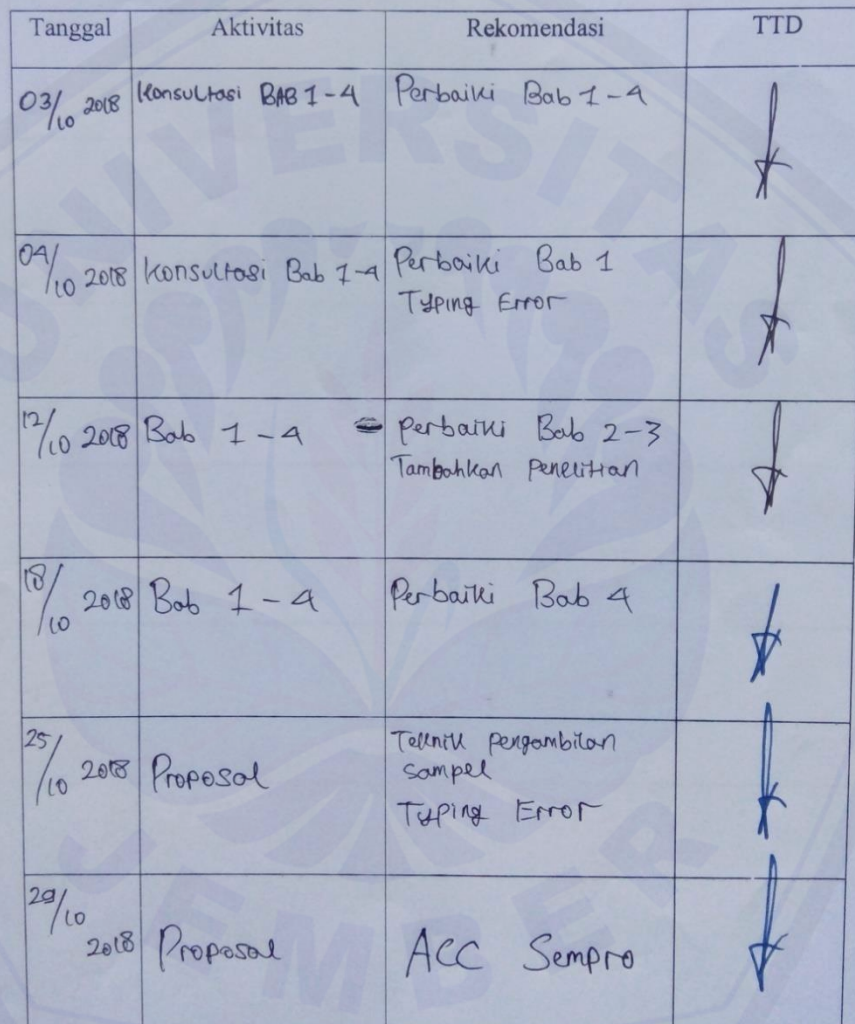 Tanggal Aktivitas Rekomendasi TTD
03/10 2018 Konsultasi BAB 1-4 Perbaiki Bab 1-4
04/10 2018 Konsultasi Bab 1-4 Perbaiki Bab 1
Typing Error
12/10 2018 Bab 1-4 Perbaiki Bab 2-3
Tambahkan Penelitian
18/10 2018 Bab 1-4 Perbaiki Bab 4
25/10 2018 Proposal Teknik pengambilan
sampel
Typing Error
29/10 2018 Proposal ACC Sempro
UNIVERSITAS
JEMBER